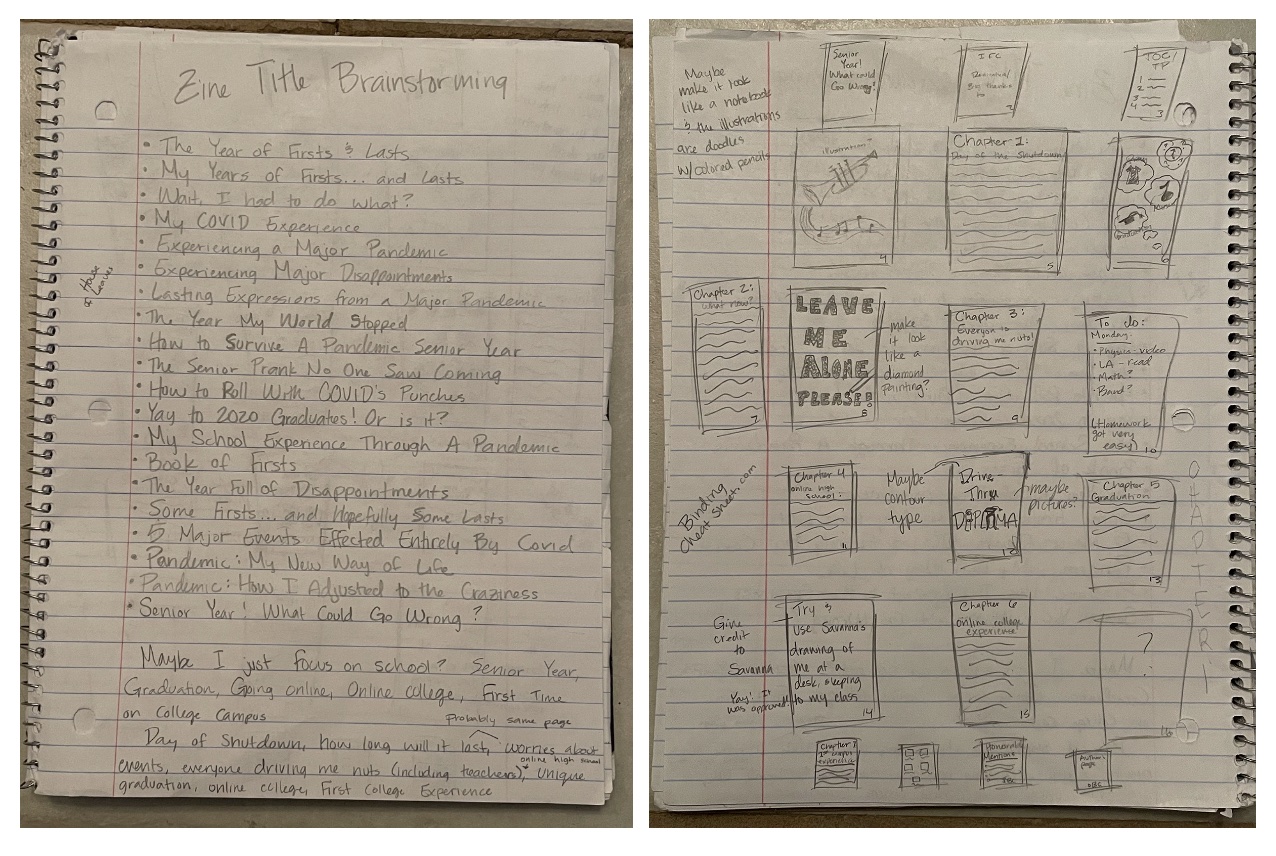 Zine Title Brainstorming
• The Year of Firsts & Lasts
• My Years of Firsts... and Lasts
• Wait, I had to do what?
• My COVID Experience
• Experiencing a Major Pandemic
• Experiencing Major Disappointments
• Lasting Expressions from a Major Pandemic
• The Year My World Stopped
• How to Survive A Pandemic Senior Year
• The Senior Prank No One Saw Coming
• How to Roll With COVID's Punches
• Yay to 2020 Graduates! Or is it?
• My School Experience Through A Pandemic
• Book of Firsts
• The Year Full of Disappointments
• Some Firsts... and Hopefully Some Lasts
• 5 Major Events Effected Entirely By Covid
• Pandemic: My New Way of Life
• Pandemic: How I Adjusted to the Craziness
• Senior Year! What Could Go Wrong?
House
of Leaves
Maybe I just focus on school? Senior Year,
Graduation, Going online, Online college, First Time
on College Campus
probably same page
Day of Shutdown, how long will it last, worries about
online high school
events, everyone driving me nuts (including teachers), unique
graduation, online college, First College Experience
Maybe
make it look
like a notebook
& the illustrations
are doodles
w/colored pencils
Senior
Year!
What could
Go Wrong?
1
IFC
Big thanks
to
2
TOC/
TP
1
2
3
4
3
illustration
4
Chapter 1:
Day of the Shutdown
5
6
Chapter 2:
What now?
7
LEAVE
ME
ALONE
PLEASE!
8
make
it look
like a
diamond
painting?
Chapter 3:
Everyone is
driving me nuts!
9
To do:
Monday-
• Physics-video
• LA-read
• Math?
• Band?
(Homework
got very
easy)
10
Binding
Cheat Sheet.com
Chapter 4
online high
school:
11
Maybe
contour
type
Drive
Thru
DIPLOMA
12
maybe
pictures?
Chapter 5
Graduation
13
Give
credit
to
Savanna
Yay! It
was approved!
Try &
use Savanna's
drawing of
me at a
desk, sleeping
to my class
14
Chapter 6
online college
experience
15
?
16
Chapter 7
1st campus
experience
Honorable
Mentions
IBC
Author's
page
OBC